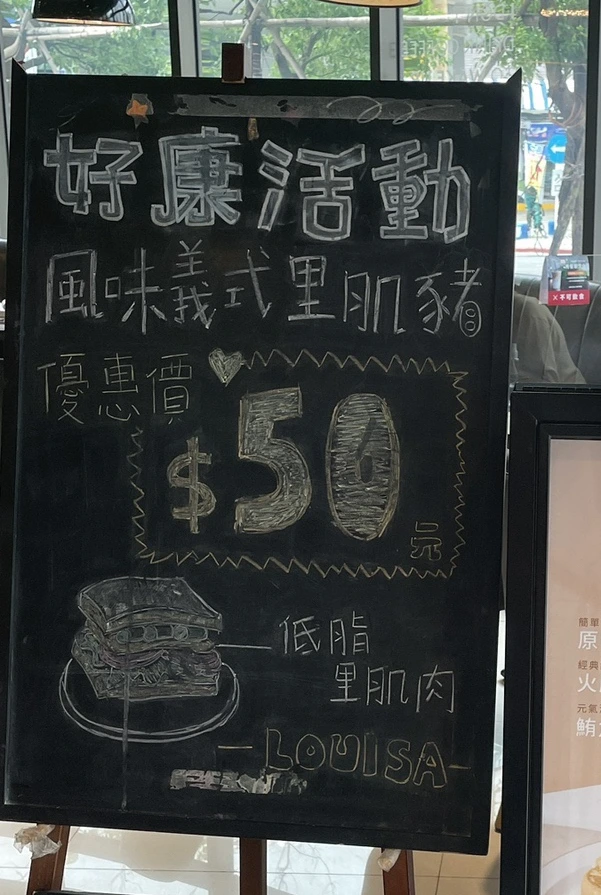 好康活動
風味義式里肌豬
優惠價
$50
元
低脂
里肌肉
—LOUISA—
不可飲食
簡單
原
經典
火
元氣
鮪